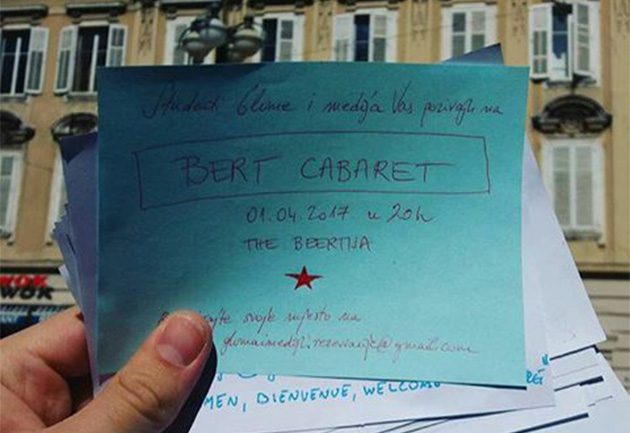 Studenti Glume i medija Vas pozivaju na
BERT CABARET
01.04.2017 u 20h
THE BEERTIJA
svoje mjesto na
@gmail.com
MEN, BIENVENUE, WELCOME
WOK
WOK